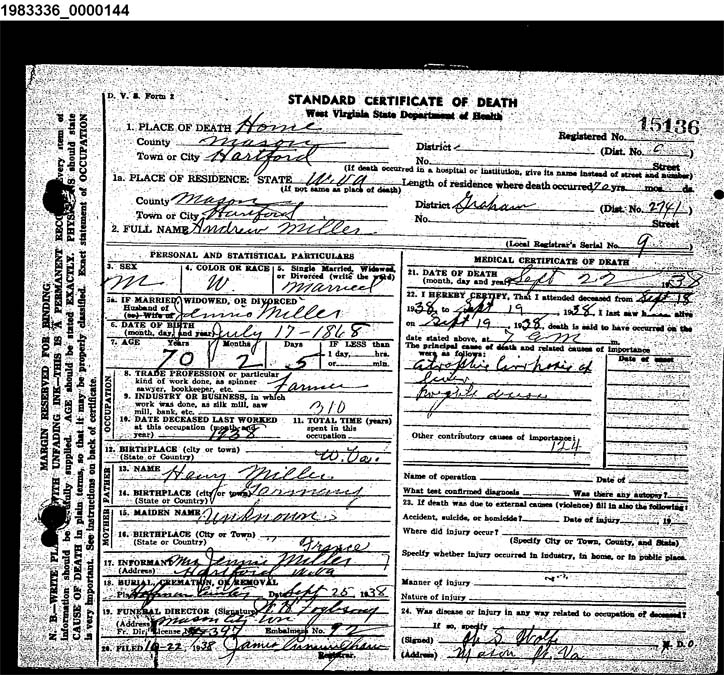 1983336_0000144
D. V. S. Form 2
STANDARD CERTIFICATE OF DEATH
West Virginia State Department of Health
15136
1. PLACE OF DEATH Home
Registered No.
County Mason
District (Dist. No. )
Town or City Hartford
No. Street
(If death occurred in a hospital or institution, give its name instead of street and number)
1a. PLACE OF RESIDENCE: STATE W.Va
Length of residence where death occurred 70 yrs. mos. ds.
(If not same as place of death)
County Mason
District Graham (Dist. No. 2741)
Town or City Hartford
No. Street
2. FULL NAME Andrew Miller
(Local Registrar's Serial No. 9)
PERSONAL AND STATISTICAL PARTICULARS
3. SEX M
4. COLOR OR RACE W
5. Single Married, Widowed, or Divorced (write the word) Married
5a. IF MARRIED, WIDOWED, OR DIVORCED
Husband of
(or) Wife of Jennie Miller
6. DATE OF BIRTH
(month, day, and year) July 17-1868
7. AGE Years 70 Months 2 Days 5
If LESS than
1 day, hrs.
or min.
OCCUPATION
8. TRADE PROFESSION or particular
kind of work done, as spinner
sawyer, bookkeeper, etc. Farmer
9. INDUSTRY OR BUSINESS, in which
work was done, as silk mill, saw
mill, bank, etc. 310
10. DATE DECEASED LAST WORKED
at this occupation (month and
year) 1938
11. TOTAL TIME (years)
spent in this
occupation
12. BIRTHPLACE (city or town)
(State or Country) W.Va.
FATHER
13. NAME Henry Miller
14. BIRTHPLACE (city or town) Germany
(State or Country)
MOTHER
15. MAIDEN NAME Unknown
16. BIRTHPLACE (city or town)
(State or Country) France
17. INFORMANT Mrs Jennie Miller
(Address) Hartford W.Va
18. BURIAL, CREMATION, OR REMOVAL
Date Sept 25, 1938
19. FUNERAL DIRECTOR (Signature)
(Address) Mason City W.Va
Fr. Dir. License No. 397 Embalmer's No. 92
20. FILED 10-22, 1938 James Cunningham
Registrar.
MEDICAL CERTIFICATE OF DEATH
21. DATE OF DEATH
(month, day and year) Sept 22 1938
22. I HEREBY CERTIFY, That I attended deceased from Sept 18
1938, to Sept 19, 1938. I last saw h alive
on Sept 19, 1938, death is said to have occurred on the
date stated above, at 7 a m
The principal cause of death and related causes of importance
were as follows:
Date of onset
Atrophic Cirrhosis of
Liver
Brights disease
Other contributory causes of importance:
124
Name of operation Date of
What test confirmed diagnosis Was there any autopsy?
23. If death was due to external causes (violence) fill in also the following:
Accident, suicide, or homicide? Date of injury 19
Where did injury occur?
(Specify City or Town, County, and State)
Specify whether injury occurred in industry, in home, or in public place.
Manner of injury
Nature of injury
24. Was disease or injury in any way related to occupation of deceased?
If so, specify
(Signed) M. D.
(Address) Mason W. Va.
MARGIN RESERVED FOR BINDING
N. B.—WRITE WITH UNFADING INK—THIS IS A PERMANENT Every item of
information should be carefully supplied. AGE should be stated EXACTLY. should state
CAUSE OF DEATH in plain terms, so that it may be properly classified. Exact statement of OCCUPATION
is very important. See instructions on back of certificate.